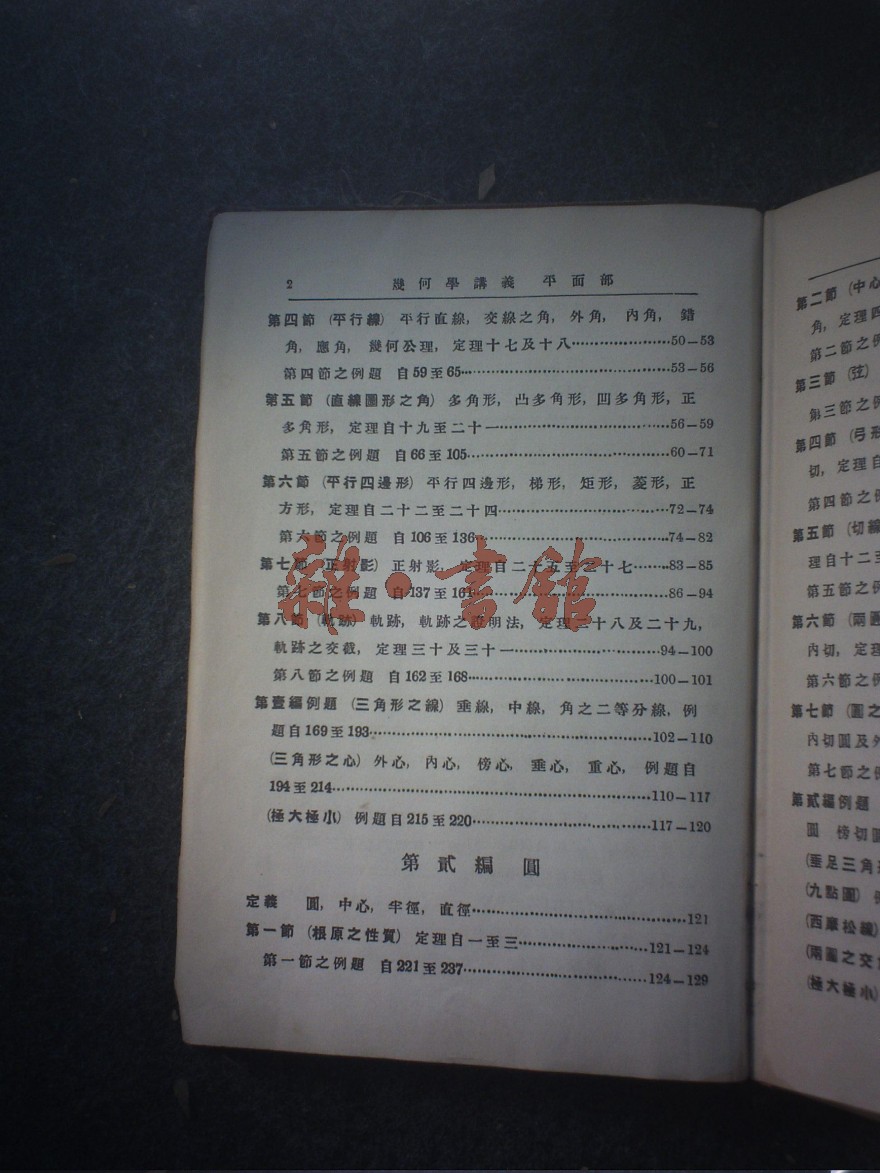 2 幾何學講義 平面部
第四節 (平行線) 平行直線, 交線之角, 外角, 內角, 錯
角, 應角, 幾何公理, 定理十七及十八……50–53
第四節之例題 自59至65……53–56
第五節 (直線圖形之角) 多角形, 凸多角形, 凹多角形, 正
多角形, 定理自十九至二十一……56–59
第五節之例題 自66至105……60–71
第六節 (平行四邊形) 平行四邊形, 梯形, 矩形, 菱形, 正
方形, 定理自二十二至二十四……72–74
第六節之例題 自106至136……74–82
第七節 (正射影) 正射影, 定理自二十五至二十七……83–85
第七節之例題 自137至161……86–94
第八節 (軌跡) 軌跡, 軌跡之證明法, 定理二十八及二十九,
軌跡之交截, 定理三十及三十一……94–100
第八節之例題 自162至168……100–101
第壹編例題 (三角形之線) 垂線, 中線, 角之二等分線, 例
題自169至193……102–110
(三角形之心) 外心, 內心, 傍心, 垂心, 重心, 例題自
194至214……110–117
(極大極小) 例題自215至220……117–120
第貳編 圓
定義 圓, 中心, 半徑, 直徑……121
第一節 (根原之性質) 定理自一至三……121–124
第一節之例題 自221至237……124–129
雜·書館
第二節 (中心
角, 定理四
第二節之例
第三節 (弦)
第三節之例
第四節 (弓形
切, 定理自
第四節之例
第五節 (切線
理自十二至
第五節之例
第六節 (兩圓
內切, 定理
第六節之例
第七節 (圓之
內切圓及外
第七節之例
第貳編例題
圓 傍切圓
(垂足三角形
(九點圓) 例
(西摩松線)
(兩圓之交角
(極大極小)